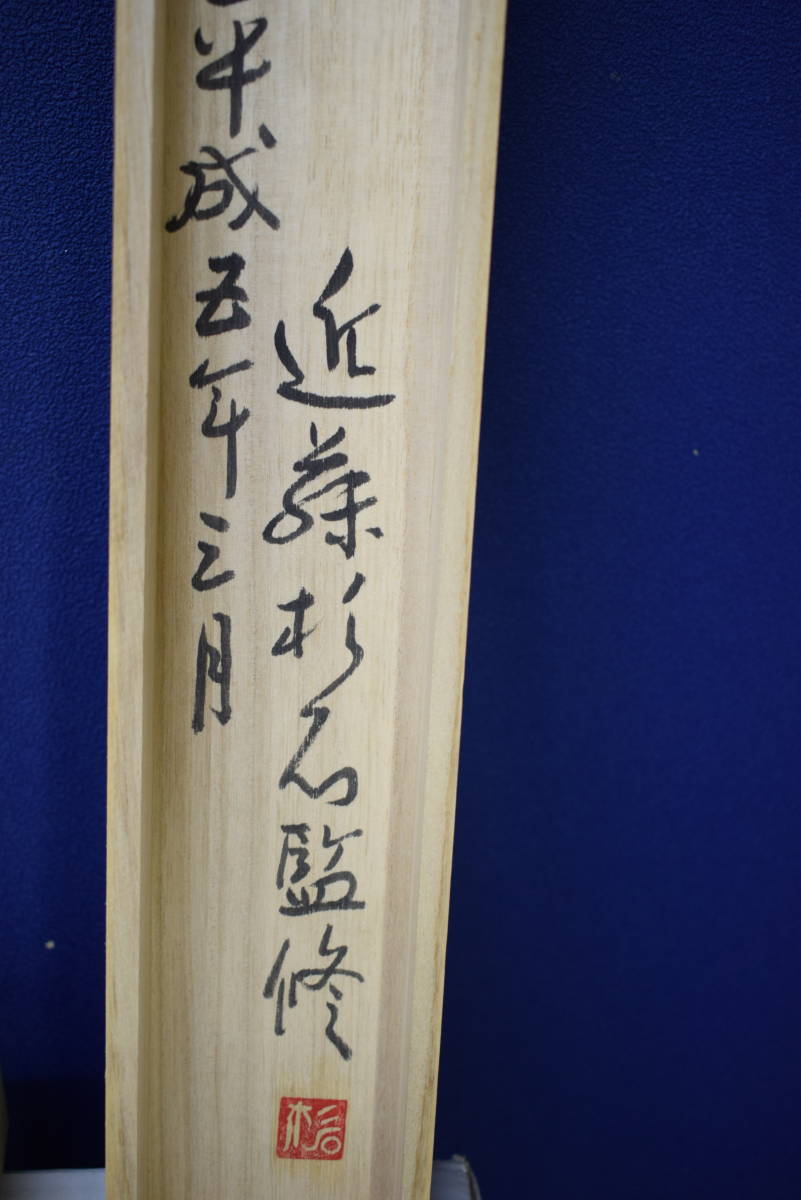 近藤杉石監修
平成五年三月